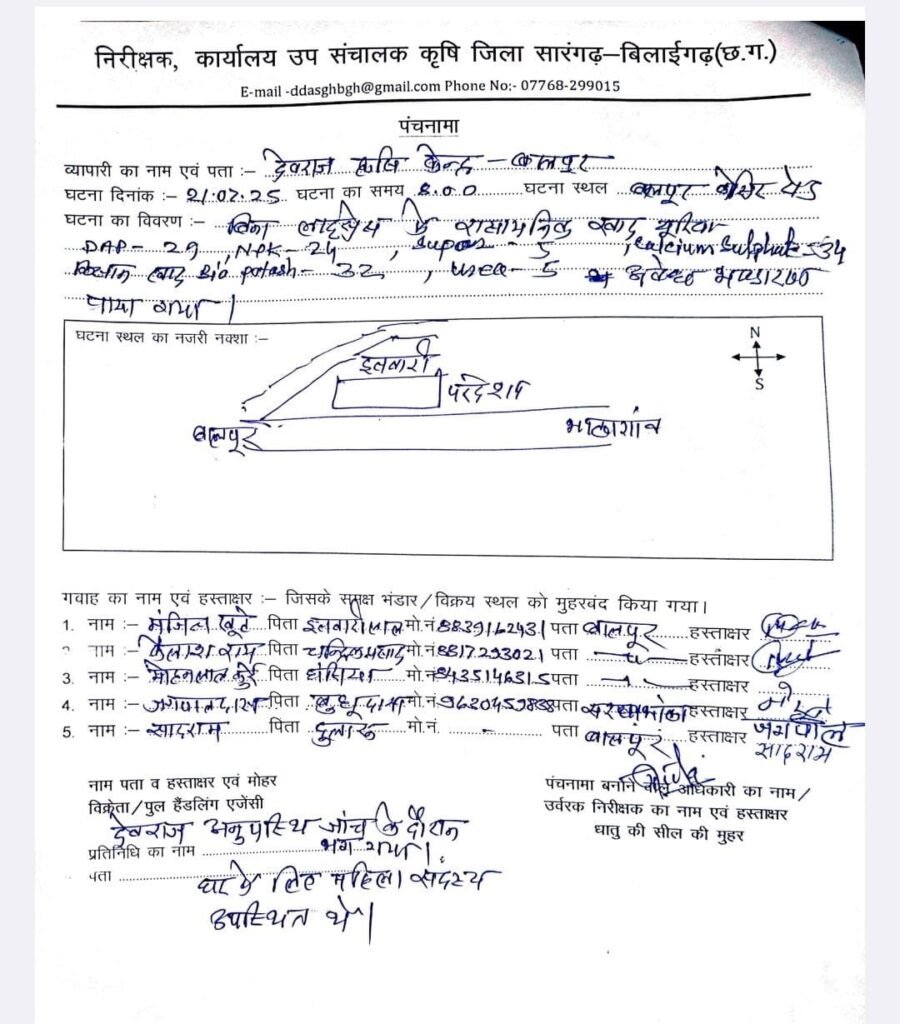 निरीक्षक, कार्यालय उप संचालक कृषि जिला सारंगढ़–बिलाईगढ़(छ.ग.)
E-mail -ddasghbgh@gmail.com Phone No:- 07768-299015
पंचनामा
व्यापारी का नाम एवं पता :- देवराज कृषि केन्द्र - बालपुर
घटना दिनांक :- 21.07.25 घटना का समय 8.00 घटना स्थल
घटना का विवरण :- बिना लाइसेंस के रासायनिक खाद यूरिया
DAP - 29, NPK - 24, Super - 5, Calcium Sulphate = 34
Bio potash - 32, urea - 5 भण्डारण
पाया गया।
घटना स्थल का नजरी नक्शा :-
N
S
इतवारी
बालपुर
गवाह का नाम एवं हस्ताक्षर :- जिसके समक्ष भंडार/विक्रय स्थल को मुहरबंद किया गया।
1. नाम :- पिता इतवारीलाल मो.नं 8839162431 पता बालपुर हस्ताक्षर
नाम :- कैलाश राम पिता मो.नं 8817293021 पता –〃– हस्ताक्षर
3. नाम :- मोहनलाल कुर्रे पिता मो.नं 8435146315 पता –〃– हस्ताक्षर
4. नाम :- जगपाल दास पिता बुधू दास मो.नं 9630459838 पता हस्ताक्षर
5. नाम :- सादराम पिता दुलारू मो.नं. - पता बालपुर हस्ताक्षर जगपाल
सादराम
नाम पता व हस्ताक्षर एवं मोहर
विक्रेता/पुल हैंडलिंग एजेंसी
देवराज अनुपस्थित जांच के दौरान
प्रतिनिधि का नाम भाग गया।
पता
घर के लिए महिला सदस्य
उपस्थित थे।
पंचनामा बनाने वाले अधिकारी का नाम/
उर्वरक निरीक्षक का नाम एवं हस्ताक्षर
धातु की सील की मुहर